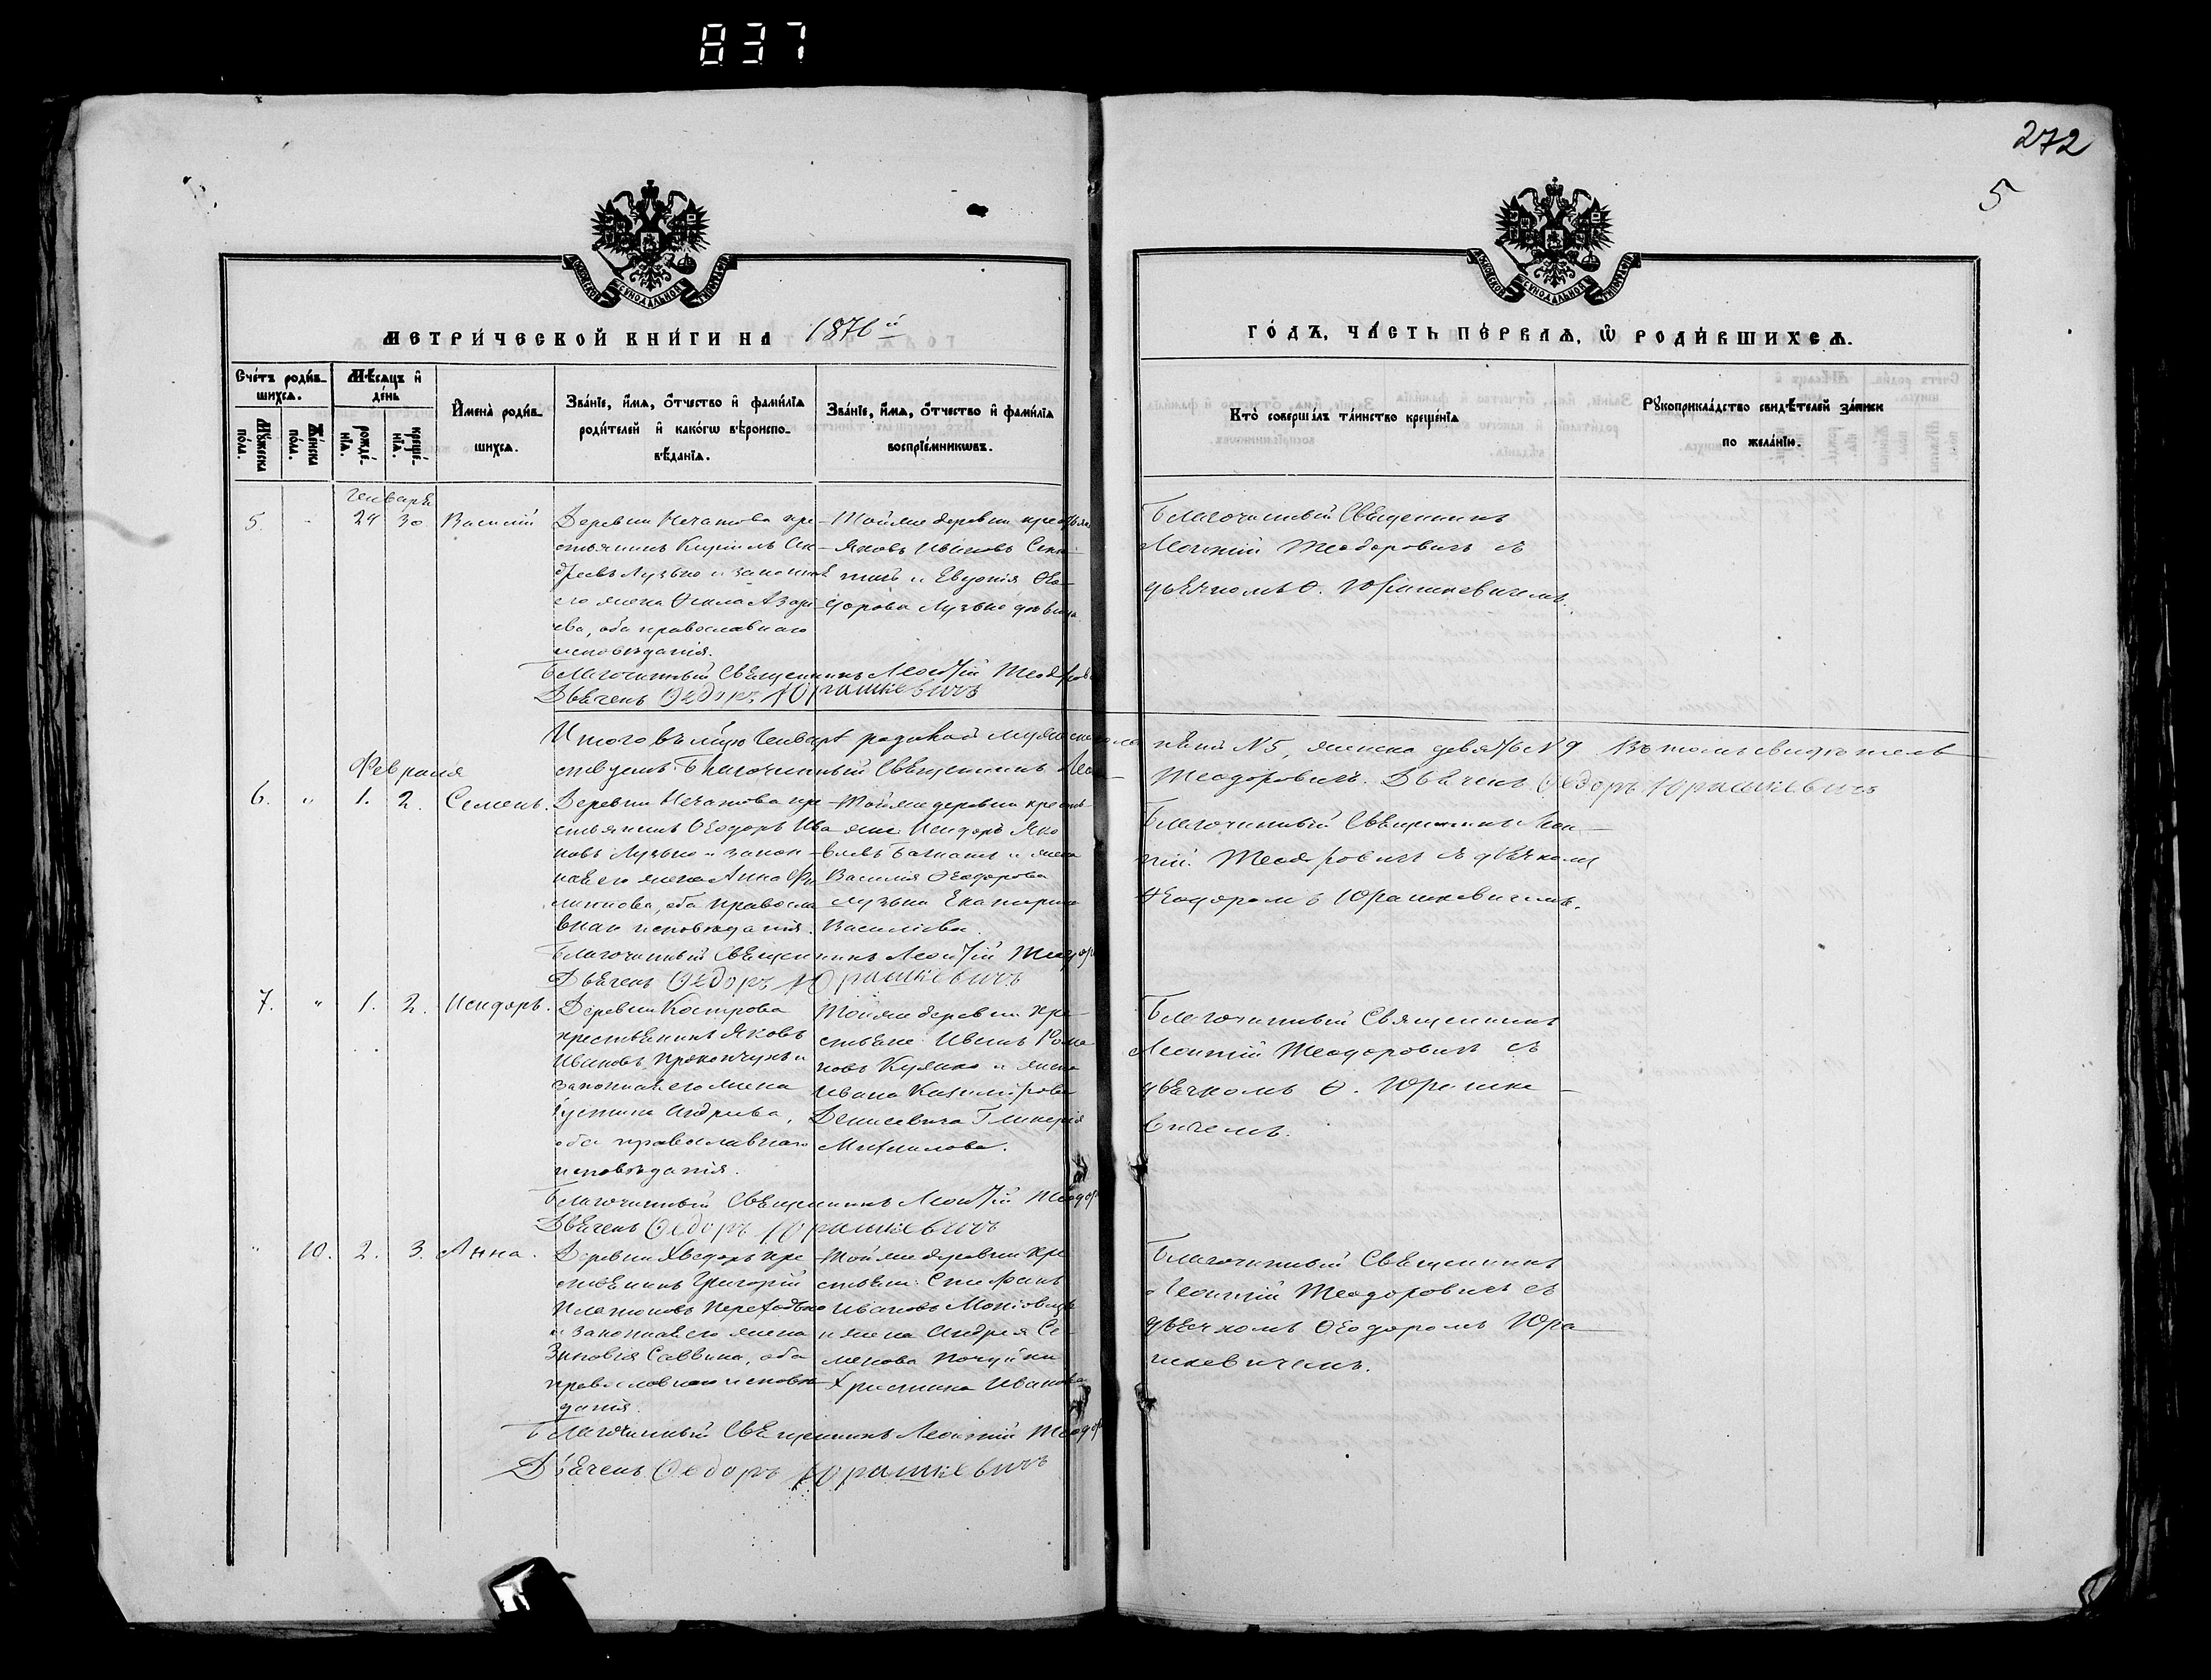 837
272
5
МЕТРИ́ЧЕСКОЙ КНИ́ГИ НА 1876й
ГО́ДЪ, ЧА́СТЬ ПЕ́РВАѦ, Ѡ҆ РОДИ́ВШИХСѦ.
Сче́тъ роди́в-
шихсѧ.
Мѣ́сѧцъ и҆
де́нь
Мꙋ́жеска по́ла.
Же́нска по́ла.
рожде́-
нїѧ.
креще́-
нїѧ.
И҆мена̀ роди́в-
шихсѧ.
Зва́нїе, и҆́мѧ, ѻ҆́тчество и҆ фами́лїѧ
роди́телей и҆ како́гѡ вѣ́роиспо-
вѣ́данїѧ.
Зва́нїе, и҆́мѧ, ѻ҆́тчество и҆ фами́лїѧ
воспрїе́мникѡвъ.
Кто̀ соверша́лъ та́инство креще́нїѧ
Рꙋкоприкла́дство свидѣ́телей за́писи
по жела́нїю.
Генварь
5. 24 30 Василій
Деревни Нечатова кре-
стьянинъ Кириллъ Ан-
дреевъ Лузько и законная
его жена Ѳекла Азарі-
ева, оба православнаго
исповѣданія.
Той же деревни крестьян
Яковъ Ивановъ
и Евдокія Ѳео-
дорова Лузько дѣвица
Благочинный Священникъ
Леонтій Теодоровичъ съ
дьячкомъ Ѳ. Юрашкевичемъ.
Благочинный Священникъ Леонтій Теодоров
Дьячекъ Ѳедоръ Юрашкевичъ
Итого въ мцѣ Генварѣ родилось мужеска пола пять N 5, женска девять N 9 Въ томъ свидѣтель-
ствуемъ: Благочинный Священникъ Леон- Теодоровичъ. Дьячекъ Ѳедоръ Юрашкевичъ
Февраля
6. " 1. 2. Семенъ.
Деревни Нечатова кре-
стьянинъ Ѳеодоръ Ива
новъ Лузько и закон-
ная его жена Анна Фи
липпова, оба правосла
внаго исповѣданія.
Той же деревни кресть-
яне: Исидоръ Яко
влевъ и жена
Василія Ѳеодорова
Лузько Екатерина
Василіева.
Благочинный Священникъ Леон-
тій Теодоровичъ съ дьячкомъ
Ѳеодоромъ Юрашкевичемъ.
Благочинный Священникъ Леонтій Теодор
Дьячекъ Ѳедоръ Юрашкевичъ
7. " 1. 2. Исидоръ.
Деревни Кострова
крестьянинъ Яковъ
Ивановъ Прокопчукъ и
законная его жена
Іустина Андреева,
оба православнаго
исповѣданія.
Той же деревни кре-
стьяне: Иванъ Рома
новъ Куляко и жена
Ивана Казимірова
Денисевича Гликерія
Михаилова.
Благочинный Священникъ
Леонтій Теодоровичъ съ
дьячкомъ Ѳ. Юрашке-
вичемъ.
Благочинный Священникъ Леонтій Теодор
Дьячекъ Ѳедоръ Юрашкевичъ
" 10. 2. 3. Анна.
Деревни Хведоръ кре-
стьянинъ Григорій
Платоновъ Переходько
и законная его жена
Зиновія Саввина, оба
православнаго исповѣ-
данія.
Той же деревни кре
стьяне: Стефанъ
Ивановъ
и жена Андрея Се-
менова
Христина Иванова
Благочинный Священникъ
Леонтій Теодоровичъ съ
дьячкомъ Ѳеодоромъ Юра-
шкевичемъ.
Благочинный Священникъ Леонтій Теодор
Дьячекъ Ѳедоръ Юрашкевичъ